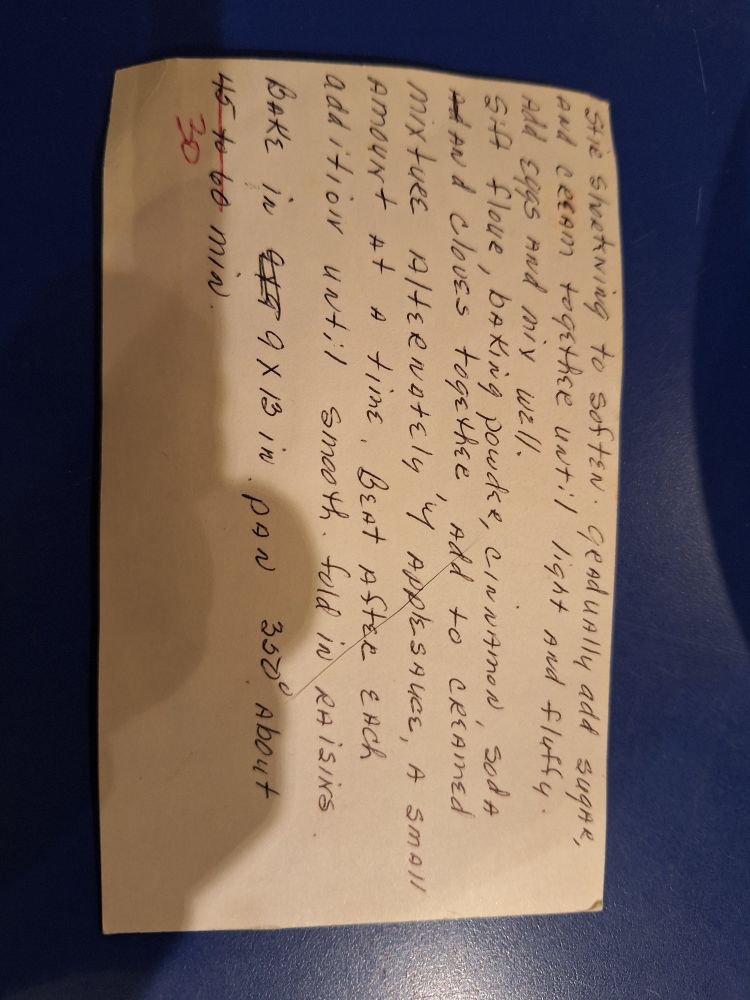 Stir shortening to soften. gradually add sugar,
and cream together until light and fluffy.
Add eggs and mix well.
Sift flour, baking powder, cinnamon, soda
and cloves together add to creamed
mixture Alternately w/ Applesauce, A small
amount At A time. Beat After Each
addition until smooth. fold in raisins.
Bake in 9 x 13 in. pan 350° About
45 to 60 min.
30